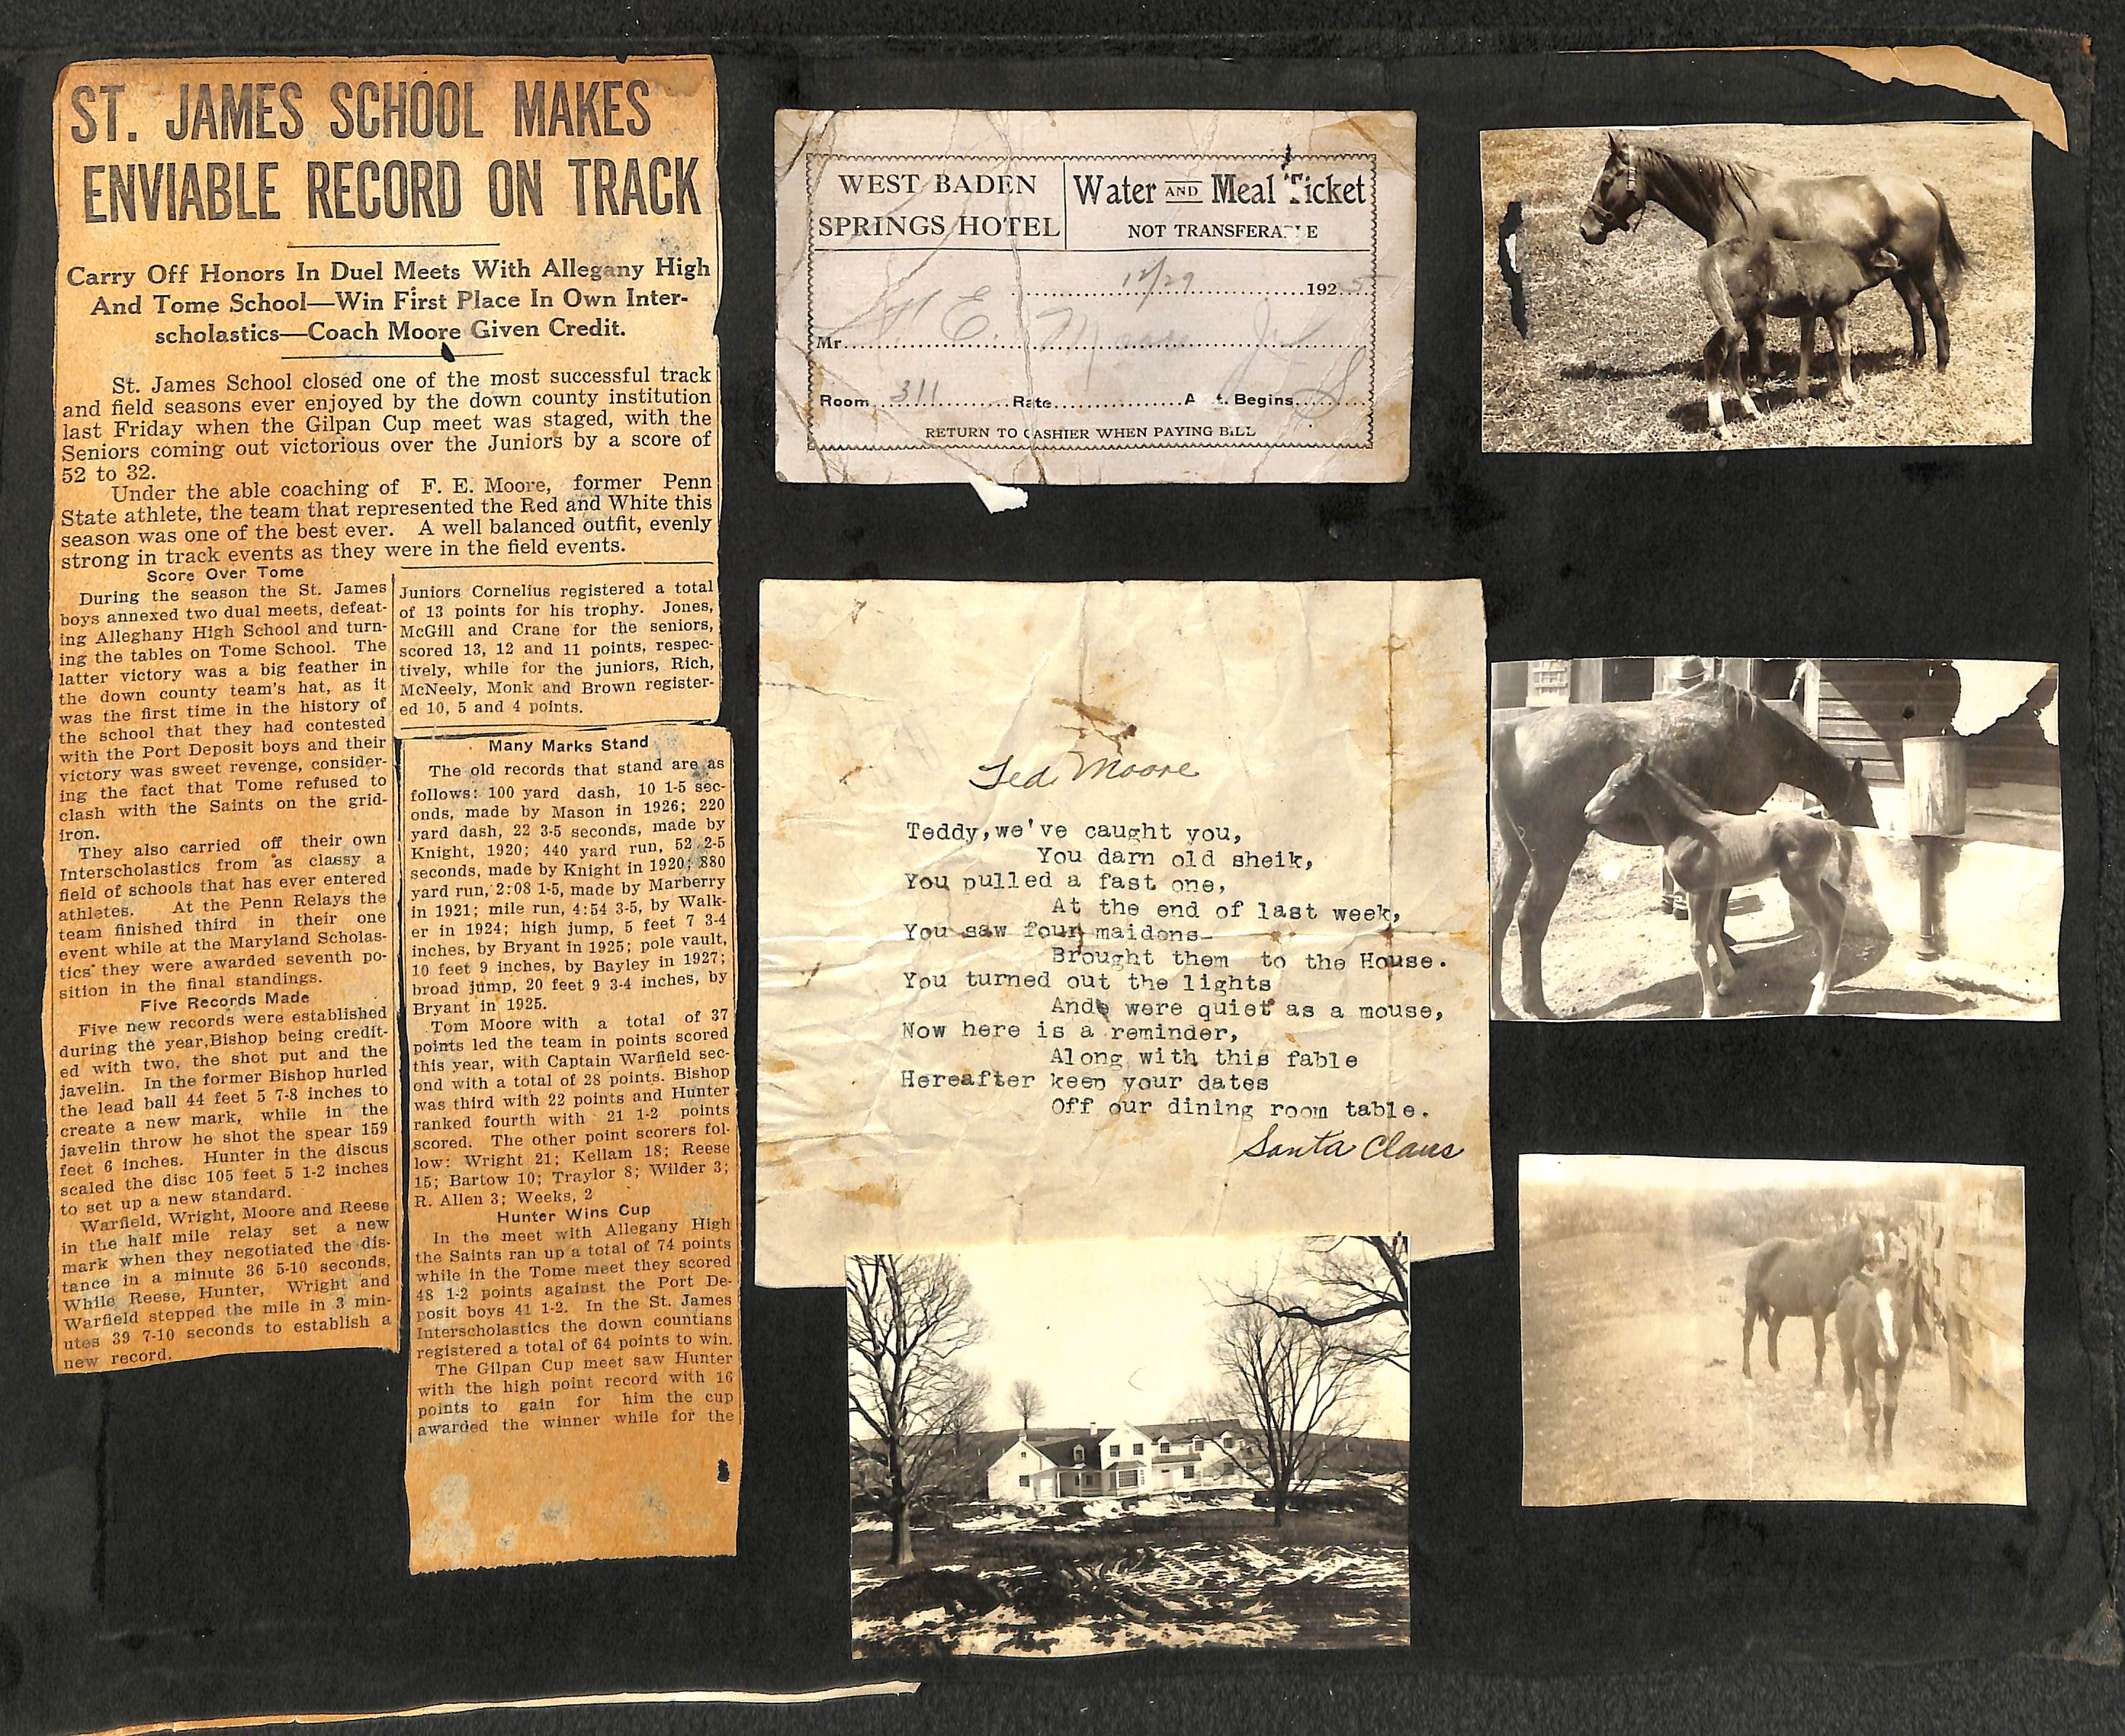 ST. JAMES SCHOOL MAKES
ENVIABLE RECORD ON TRACK
Carry Off Honors In Duel Meets With Allegany High
And Tome School—Win First Place In Own Inter-
scholastics—Coach Moore Given Credit.
St. James School closed one of the most successful track
and field seasons ever enjoyed by the down county institution
last Friday when the Gilpan Cup meet was staged, with the
Seniors coming out victorious over the Juniors by a score of
52 to 32.
Under the able coaching of F. E. Moore, former Penn
State athlete, the team that represented the Red and White this
season was one of the best ever. A well balanced outfit, evenly
strong in track events as they were in the field events.
Score Over Tome
During the season the St. James
boys annexed two dual meets, defeat-
ing Alleghany High School and turn-
ing the tables on Tome School. The
latter victory was a big feather in
the down county team's hat, as it
was the first time in the history of
the school that they had contested
with the Port Deposit boys and their
victory was sweet revenge, consider-
ing the fact that Tome refused to
clash with the Saints on the grid-
iron.
They also carried off their own
Interscholastics from as classy a
field of schools that has ever entered
athletes. At the Penn Relays the
team finished third in their one
event while at the Maryland Scholas-
tics they were awarded seventh po-
sition in the final standings.
Five Records Made
Five new records were established
during the year,Bishop being credit-
ed with two, the shot put and the
javelin. In the former Bishop hurled
the lead ball 44 feet 5 7-8 inches to
create a new mark, while in the
javelin throw he shot the spear 159
feet 6 inches. Hunter in the discus
scaled the disc 105 feet 5 1-2 inches
to set up a new standard.
Warfield, Wright, Moore and Reese
in the half mile relay set a new
mark when they negotiated the dis-
tance in a minute 36 5-10 seconds,
While Reese, Hunter, Wright and
Warfield stepped the mile in 3 min-
utes 39 7-10 seconds to establish a
new record.
Juniors Cornelius registered a total
of 13 points for his trophy. Jones,
McGill and Crane for the seniors,
scored 13, 12 and 11 points, respec-
tively, while for the juniors, Rich,
McNeely, Monk and Brown register-
ed 10, 5 and 4 points.
Many Marks Stand
The old records that stand are as
follows: 100 yard dash, 10 1-5 sec-
onds, made by Mason in 1926; 220
yard dash, 22 3-5 seconds, made by
Knight, 1920; 440 yard run, 52 2-5
seconds, made by Knight in 1920; 880
yard run, 2:08 1-5, made by Marberry
in 1921; mile run, 4:54 3-5, by Walk-
er in 1924; high jump, 5 feet 7 3-4
inches, by Bryant in 1925; pole vault,
10 feet 9 inches, by Bayley in 1927;
broad jump, 20 feet 9 3-4 inches, by
Bryant in 1925.
Tom Moore with a total of 37
points led the team in points scored
this year, with Captain Warfield sec-
ond with a total of 28 points. Bishop
was third with 22 points and Hunter
ranked fourth with 21 1-2 points
scored. The other point scorers fol-
low: Wright 21; Kellam 18; Reese
15; Bartow 10; Traylor 8; Wilder 3;
R. Allen 3; Weeks, 2
Hunter Wins Cup
In the meet with Allegany High
the Saints ran up a total of 74 points
while in the Tome meet they scored
48 1-2 points against the Port De-
posit boys 41 1-2. In the St. James
Interscholastics the down countians
registered a total of 64 points to win.
The Gilpan Cup meet saw Hunter
with the high point record with 16
points to gain for him the cup
awarded the winner while for the
WEST BADEN
SPRINGS HOTEL
Water AND Meal Ticket
NOT TRANSFERA E
12/29 1925
Mr. F. E. Moore Jr
Room 311 Rate A t. Begins S
RETURN TO CASHIER WHEN PAYING BILL
Ted Moore
Teddy,we've caught you,
You darn old sheik,
You pulled a fast one,
At the end of last week,
You saw four maidens-
Brought them to the House.
You turned out the lights
And were quiet as a mouse,
Now here is a reminder,
Along with this fable
Hereafter keep your dates
Off our dining room table.
Santa Claus